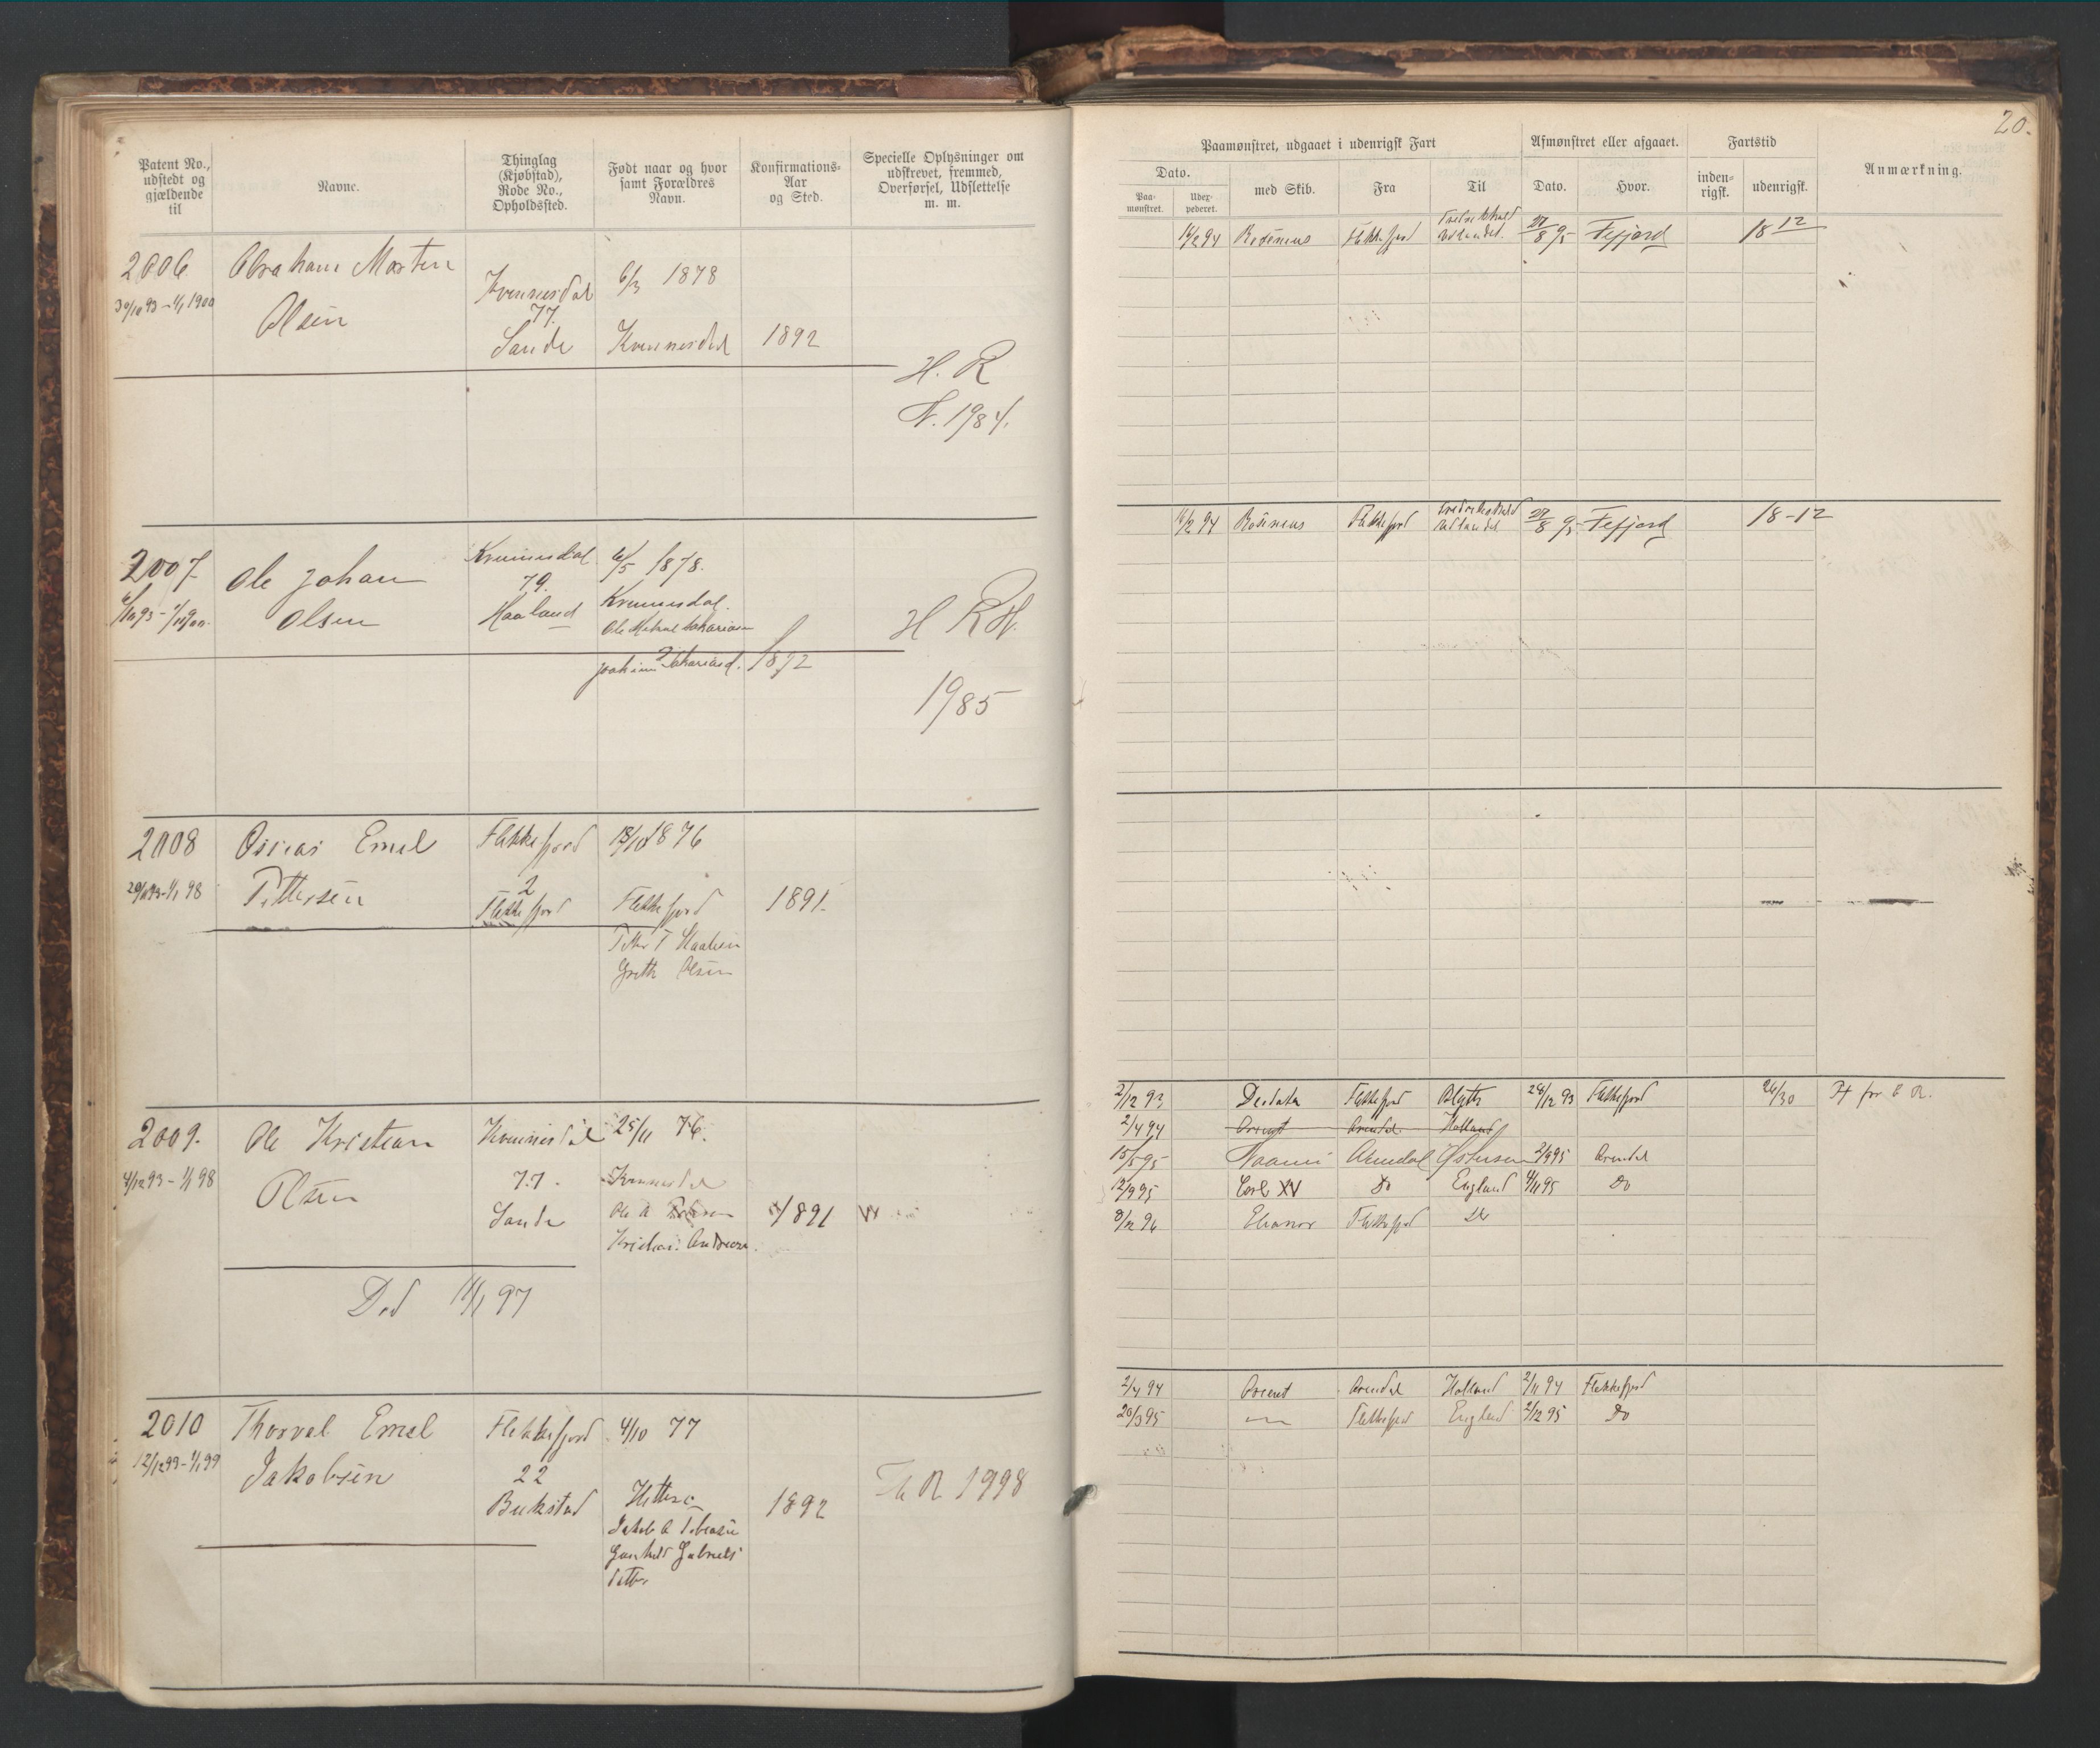 Patent No.,
udstedt og
gjældende
til
Navne.
Thinglag
(Kjøbstad),
Rode No.,
Opholdssted.
Født naar og hvor
samt Forældres
Navn.
Konfirmations-
Aar
og Sted.
Specielle Oplysninger om
udskrevet, fremmed,
Overførsel, Udslettelse
m. m.
2006
30/10 93 - 1/1 1900
Abraham Morten
Olsen
Kvinnesdal
77.
Sande
6/3 1878
Kvinnesdal
1892
H. R
N. 1984.
2007
Ole Johan
Olsen
Kvinnesdal
79.
Haaland
6/5 1878.
Kvinnesdal.
1892
H R H.
1985
2008
1/1 98
Oscar Emil
Pettersen
Flekkefjord
2
Flekkefjord
18/10 1876
Flekkefjord
Grethe Olsen
1891.
2009.
4/12 93 - 1/1 98
Ole Kristian
Olsen
Kvinnesdal
77.
Sande
25/11 76.
Kvinnesdal
Ole A
1891
Død 11/1 97
2010
12/12 93 - 1/1 99
Thorval Emil
Jakobsen
Flekkefjord
22
Bukstad
4/10 77
Hitterø
Jakob A Tobiasen
Gunhild Gabriels
datter
1892
R 1998
20.
Paamønstret, udgaaet i udenrigsk Fart
Afmønstret eller afgaaet.
Fartstid
Anmærkning.
Dato.
Paa-
mønstret.
Udex-
pederet.
med Skib.
Fra
Til
Dato.
Hvor.
inden-
rigsk.
udenrigsk.
16/2 94 Flekkefjord Fredrikshald
Udlandet. 27/8 95 Fefjord 18 12
16/2 94 Flekkefjord Fredrikshald
Udlandet 27/8 95 Fefjord 18-12
2/12 93 Deodata Flekkefjord Blyth 24/12 93 Flekkefjord 24/30 for
2/4 94 Orient Arendal Holland
15/5 95 Naomi Arendal Østersøen 2/9 95 Arendal
12/9 95 Carl XV Do England 4/11 95 Do
Eleanor Flekkefjord Do
2/4 94 Orient Arendal Holland 2/11 94 Flekkefjord
20/3 95 Flekkefjord England 2/12 95 Do